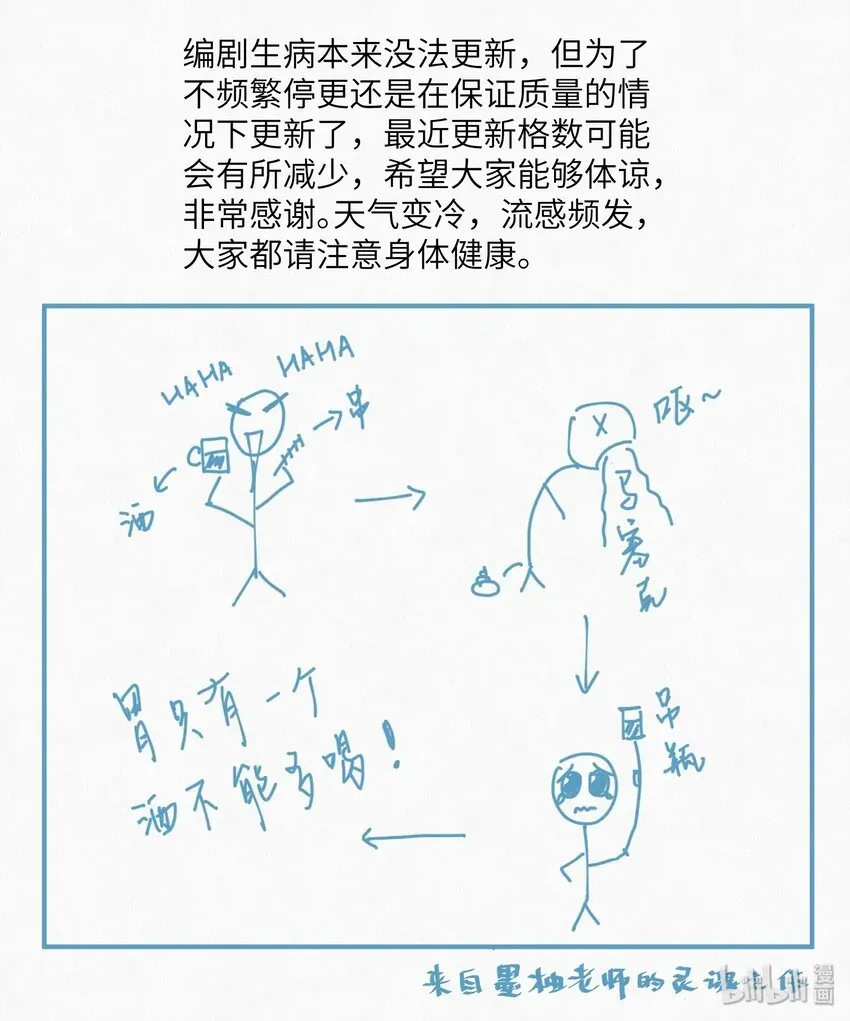 编剧生病本来没法更新，但为了
不频繁停更还是在保证质量的情
况下更新了，最近更新格数可能
会有所减少，希望大家能够体谅，
非常感谢。天气变冷，流感频发，
大家都请注意身体健康。
HAHA
HAHA
串
酒
呕~
马赛克
吊瓶
胃只有一个
酒不能多喝！
来自墨柚老师的灵魂
bilibili
漫画